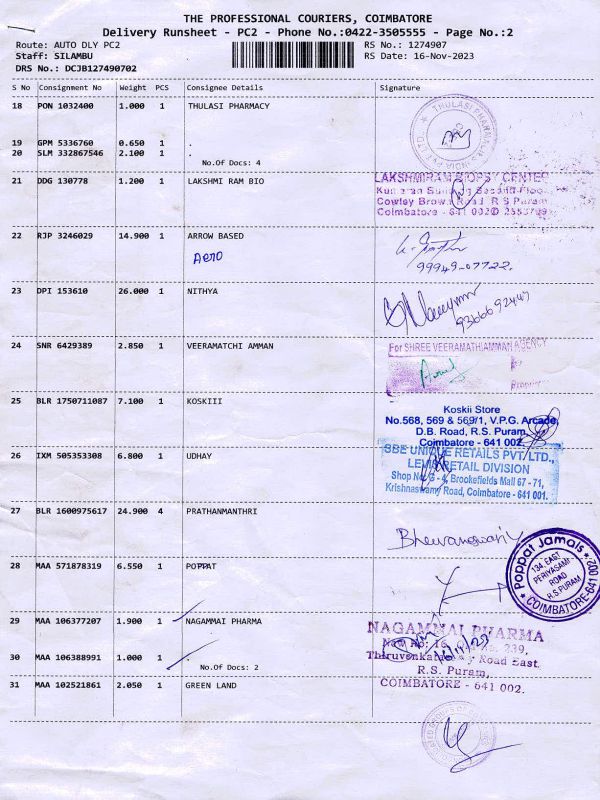 THE PROFESSIONAL COURIERS, COIMBATORE
Delivery Runsheet - PC2 - Phone No.:0422-3505555 - Page No.:2
Route: AUTO DLY PC2 RS No.: 1274907
Staff: SILAMBU RS Date: 16-Nov-2023
DRS No.: DCJB127490702
S No Consignment No Weight PCS Consignee Details Signature
18 PON 1032400 1.000 1 THULASI PHARMACY
19 GPM 5336760 0.650 1 .
20 SLM 332867546 2.100 1 .
No.Of Docs: 4
21 DDG 130778 1.200 1 LAKSHMI RAM BIO
LAKSHMIRAM BIOPSY CENTER
Cowley Brown Road R S Puram
Coimbatore - 641 002
22 RJP 3246029 14.900 1 ARROW BASED
Aero
99949-07722.
23 DPI 153610 26.000 1 NITHYA
9366692447
24 SNR 6429389 2.850 1 VEERAMATCHI AMMAN
For SHREE VEERAMATHIAMMAN AGENCY
25 BLR 1750711087 7.100 1 KOSKIII
Koskii Store
No.568, 569 & 569/1, V.P.G. Arcade,
D.B. Road, R.S. Puram,
Coimbatore - 641 002
26 IXM 505353308 6.800 1 UDHAY
SBE UNIQUE RETAILS PVT/LTD.,
LEVIS RETAIL DIVISION
Shop No. G - 4, Brookefields Mall 67 - 71,
Krishnaswamy Road, Coimbatore - 641 001.
27 BLR 1600975617 24.900 4 PRATHANMANTHRI
28 MAA 571878319 6.550 1 POPPAT
Poppat Jamals
134, EAST
PERIYASAMI
ROAD
R.S PURAM
COIMBATORE-641 002
29 MAA 106377207 1.900 1 NAGAMMAI PHARMA
NAGAMMAI PHARMA
30 MAA 106388991 1.000 1 .
No.Of Docs: 2
Road East,
R.S. Puram,
COIMBATORE - 641 002.
31 MAA 102521861 2.050 1 GREEN LAND